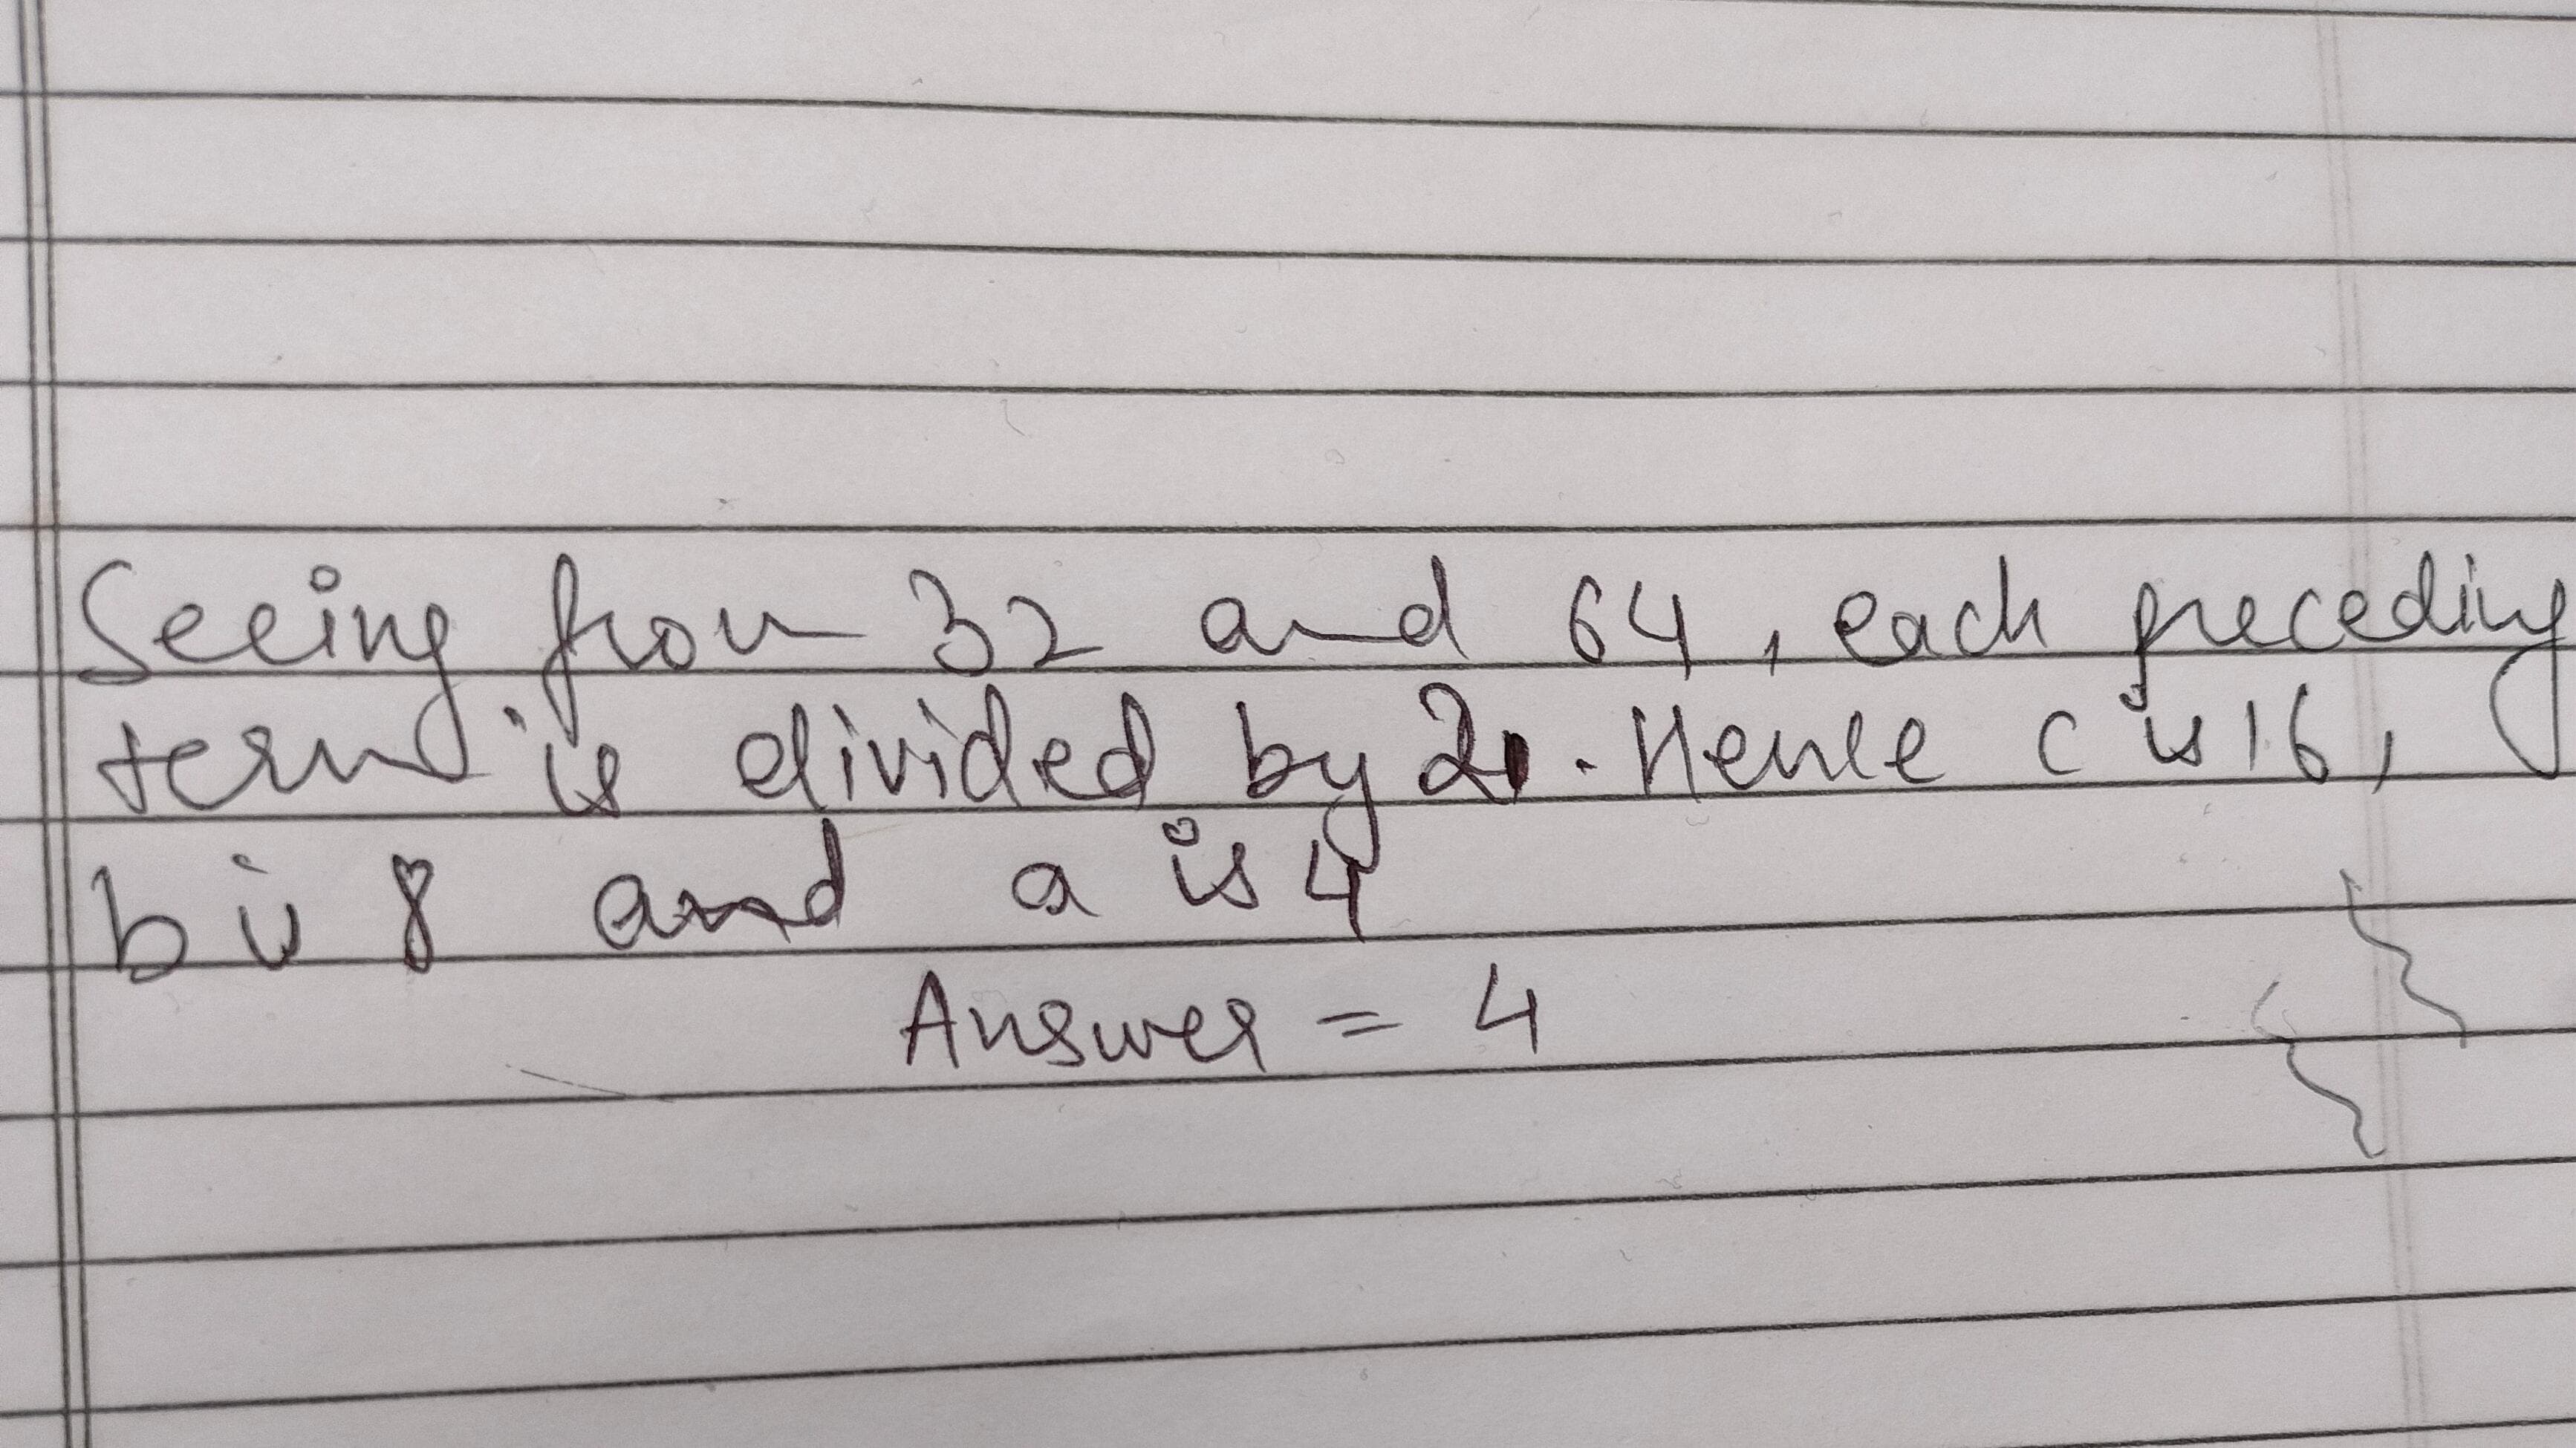 Seeing from 32 and 64, each preceding
term is divided by 2. Hence c is 16,
b is 8 and a is 4
Answer = 4